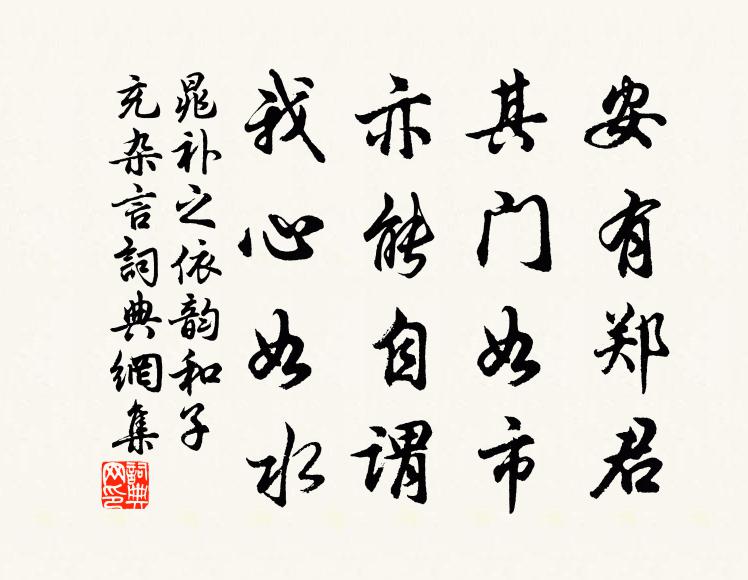 安有郑君
其门如市
亦能自谓
我心如水
晁补之依韵和子
充杂言詞典網集
詞典网印